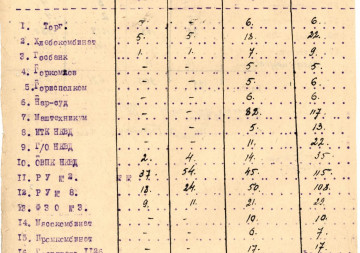 1. Торг. - - 6. 6.
2. Хлебокомбинат 5. 5. 13. 22.
3. Госбанк 1. 1. 7. 9.
4. Горкомхоз - - 5. 5.
5. Горисполком - - 5. 6.
6. Нар-суд - - 6. 6.
7. Мехтехникум - - 82. 117.
8. МТК НКВД - - 5. 13.
9. Г/О НКВД - - 11. 22.
10. НКВД 2. 4. 14. 35.
11. Р У № 2. 37. 54. 45. 115.
12. Р У № 8. 18. 24. 50. 108.
13. Ф З О № 3. 9. 11. 21. 29.
14. Мясокомбинат - - 10. 10.
15. Промкомбинат - - 6. 7.
- - 17. 17.